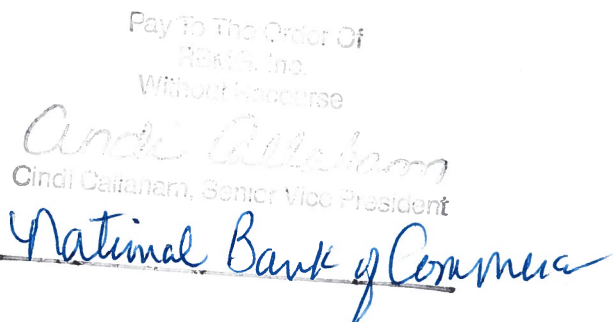 Pay To The Order Of
RBMG, Inc.
Without Recourse
Cindi Callaham
Cindi Callaham, Senior Vice President
National Bank of Commerce